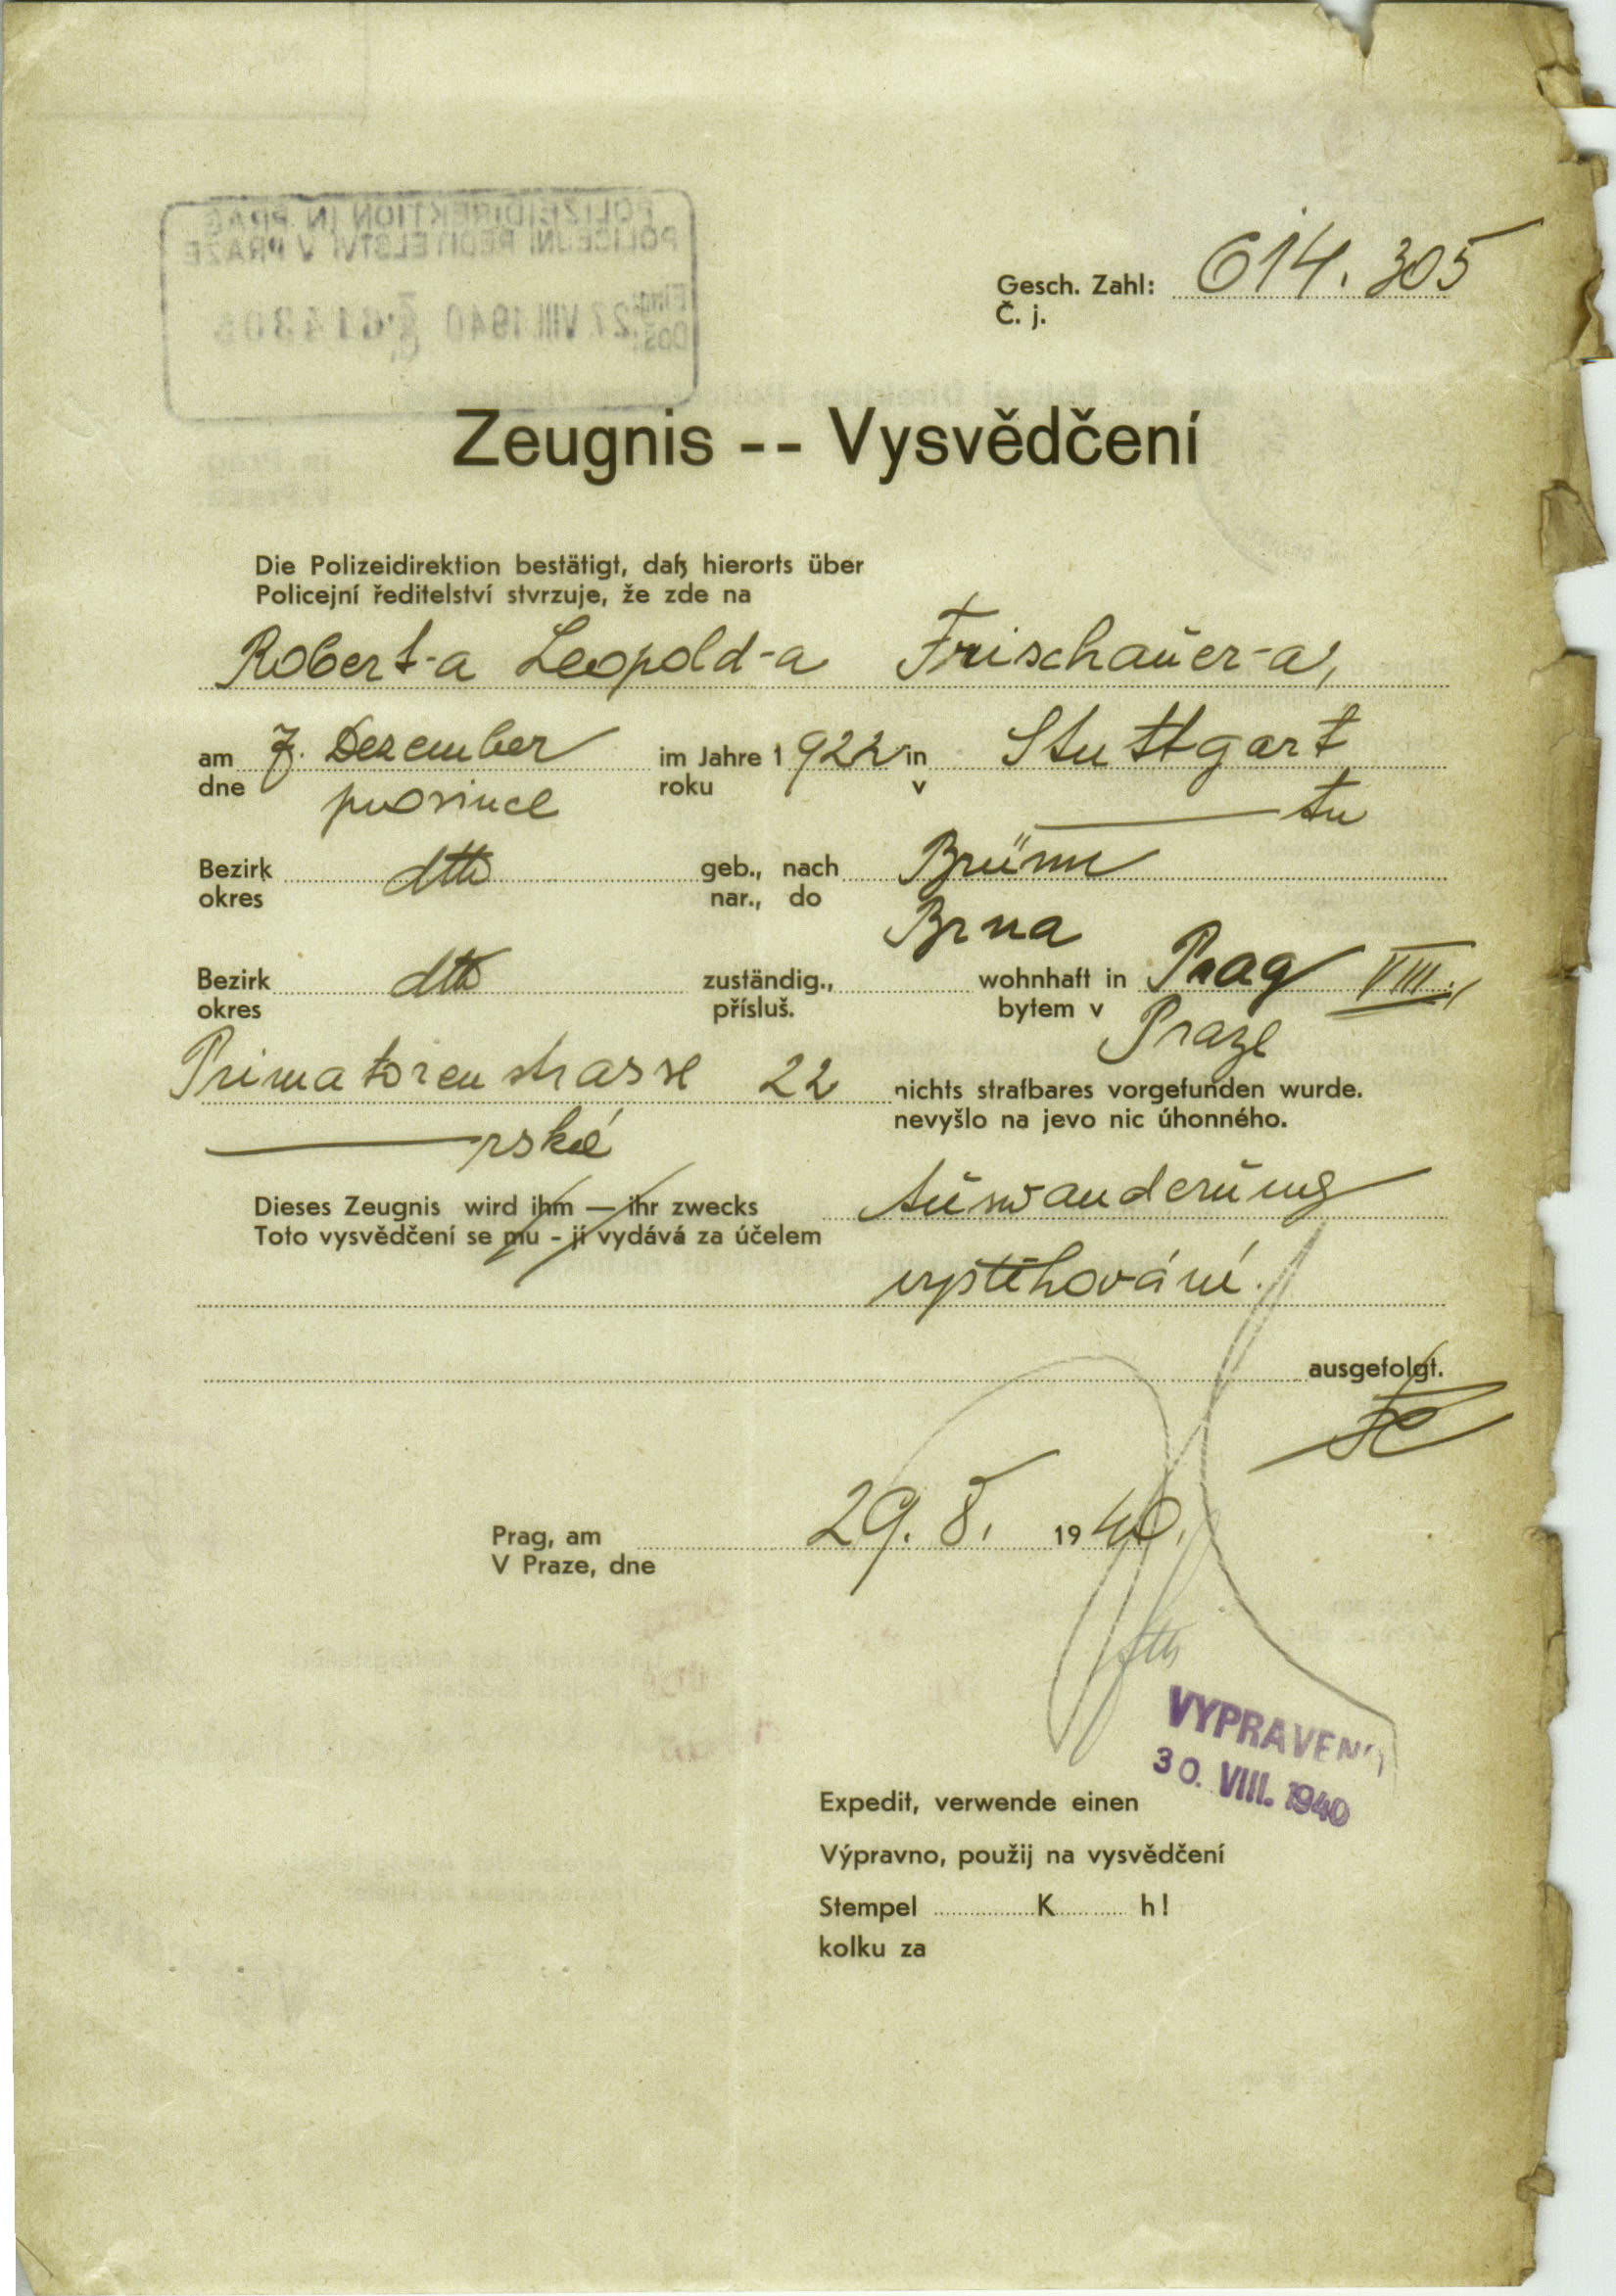 POLIZEIDIREKTION IN PRAG
POLICEJNÍ ŘEDITELSTVÍ V PRAZE
Eing.
Doš.
27. VIII. 1940
614305
Gesch. Zahl: 614.305
Č. j.
Zeugnis -- Vysvědčení
Die Polizeidirektion bestätigt, daß hierorts über
Policejní ředitelství stvrzuje, že zde na
Robert-a Leopold-a Frischauer-a,
am 7. Dezember im Jahre 1922 in Stuttgart
dne prosince roku v tu
Bezirk dtto geb., nach Brünn
okres nar., do Brna
Bezirk dtto zuständig., wohnhaft in Prag VIII.,
okres přísluš. bytem v Praze
Primatorenstrasse 22 nichts strafbares vorgefunden wurde.
rské nevyšlo na jevo nic úhonného.
Dieses Zeugnis wird ihm — ihr zwecks Auswanderung
Toto vysvědčení se mu - jí vydává za účelem
vystěhování.
ausgefolgt.
Prag, am 29. 8. 1940.
V Praze, dne
VYPRAVENO
30. VIII. 1940
Expedit, verwende einen
Výpravno, použij na vysvědčení
Stempel K h!
kolku za